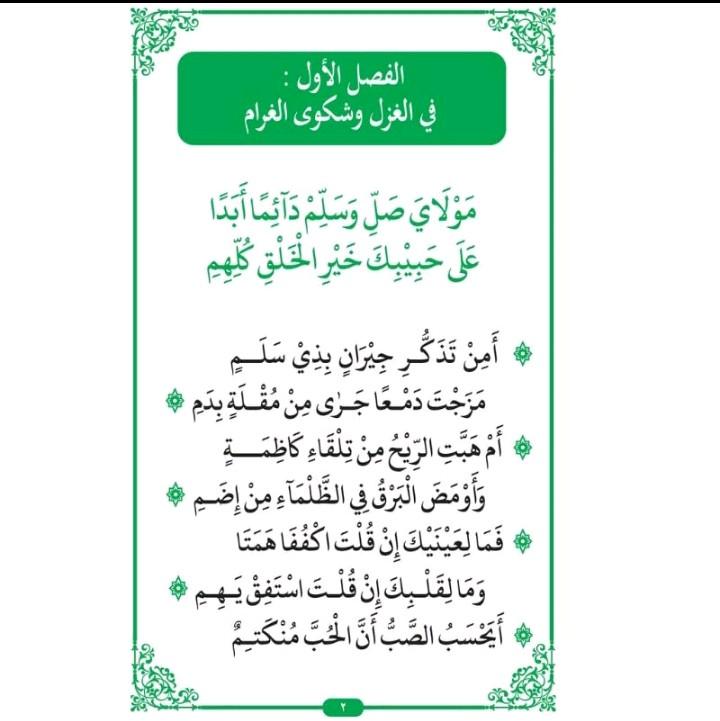 الفصل الأول :
في الغزل وشكوى الغرام
مَوْلَايَ صَلِّ وَسَلِّمْ دَآئِمًا أَبَدًا
عَلَى حَبِيْبِكَ خَيْرِ الْخَلْقِ كُلِّهِمِ
أَمِنْ تَذَكُّـرِ جِيْرَانٍ بِذِيْ سَلَـــمٍ
مَزَجْتَ دَمْـعًا جَـرٰى مِنْ مُقْـلَةٍ بِدَمِ
أَمْ هَبَّتِ الرِّيْحُ مِنْ تِلْقَاءِ كَاظِمَـــةٍ
وَأَوْمَضَ الْبَرْقُ فِي الظَّلْمَآءِ مِنْ إِضَـمِ
فَمَا لِعَيْنَيْكَ إِنْ قُلْتَ اكْفُفَا هَمَتَا
وَمَا لِقَلْـبِكَ إِنْ قُلْـتَ اسْتَفِقْ يَـهِـمِ
أَيَحْسَبُ الصَّبُّ أَنَّ الْحُبَّ مُنْكَتِـمٌ
٢